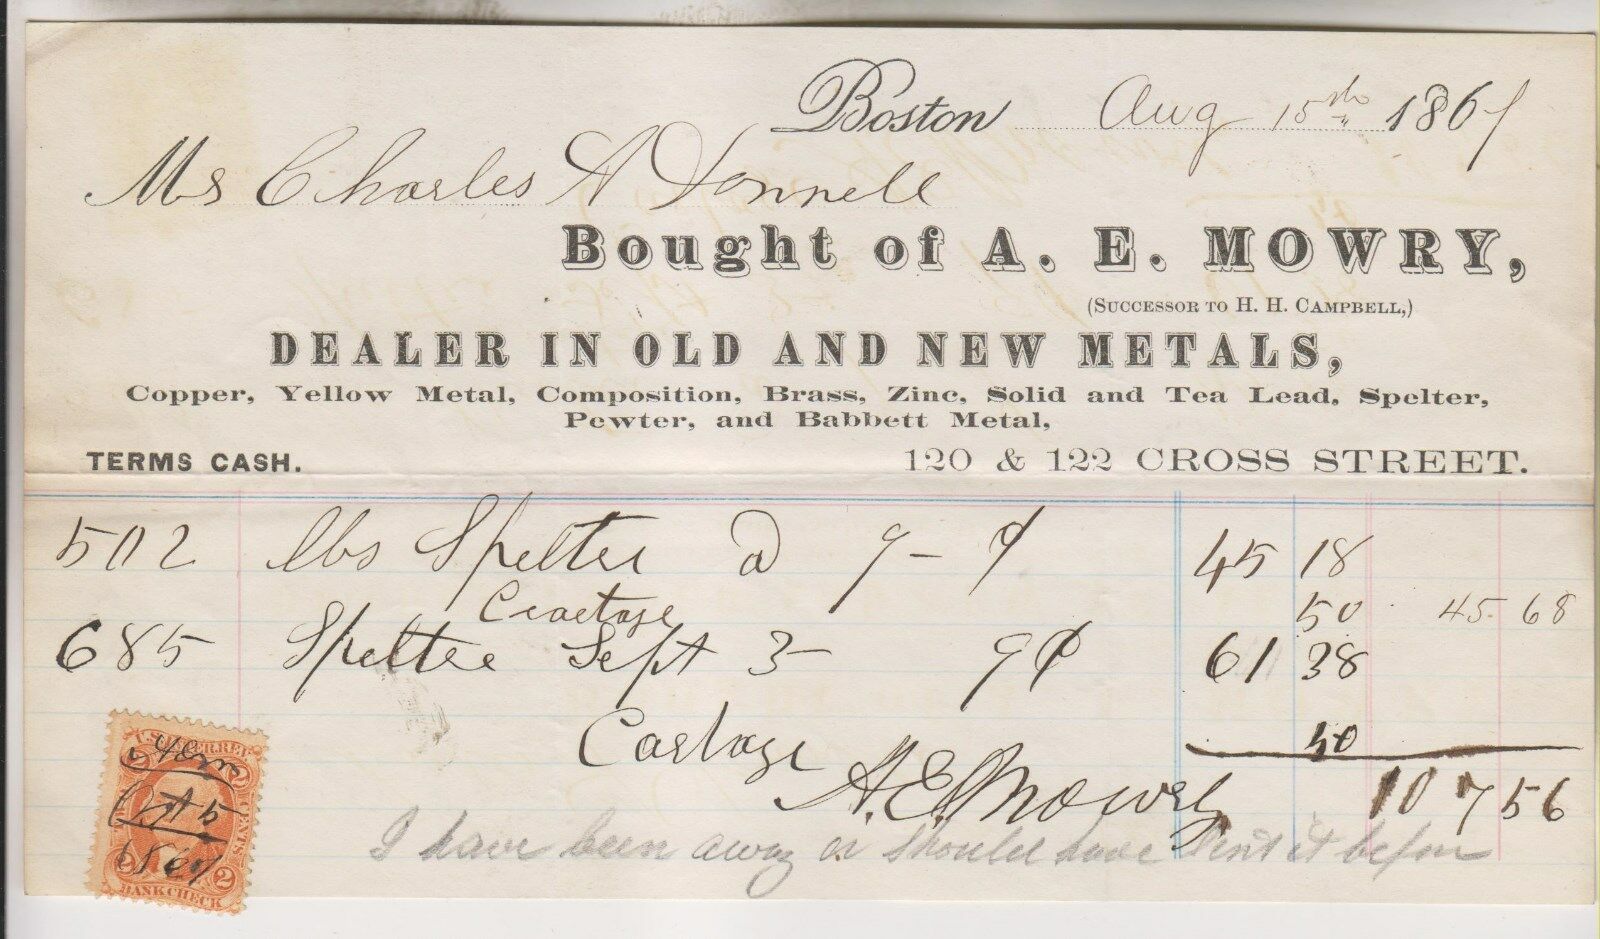 Boston Aug 15th 1867
Mr Charles A Donnell
Bought of A. E. MOWRY,
(SUCCESSOR TO H. H. CAMPBELL,)
DEALER IN OLD AND NEW METALS,
Copper, Yellow Metal, Composition, Brass, Zinc, Solid and Tea Lead, Spelter,
Pewter, and Babbett Metal,
TERMS CASH. 120 & 122 CROSS STREET.
502 lbs Spelter @ 9 - ¢ 45 18
Cartage 50 45 68
685 Spelter Sept 3 - 9¢ 61 38
Cartage 50
A. E. Mowry 107 56
I have been away or should have sent it before
U.S. INTER. REV.
2 2
CENTS
2 2
BANK CHECK